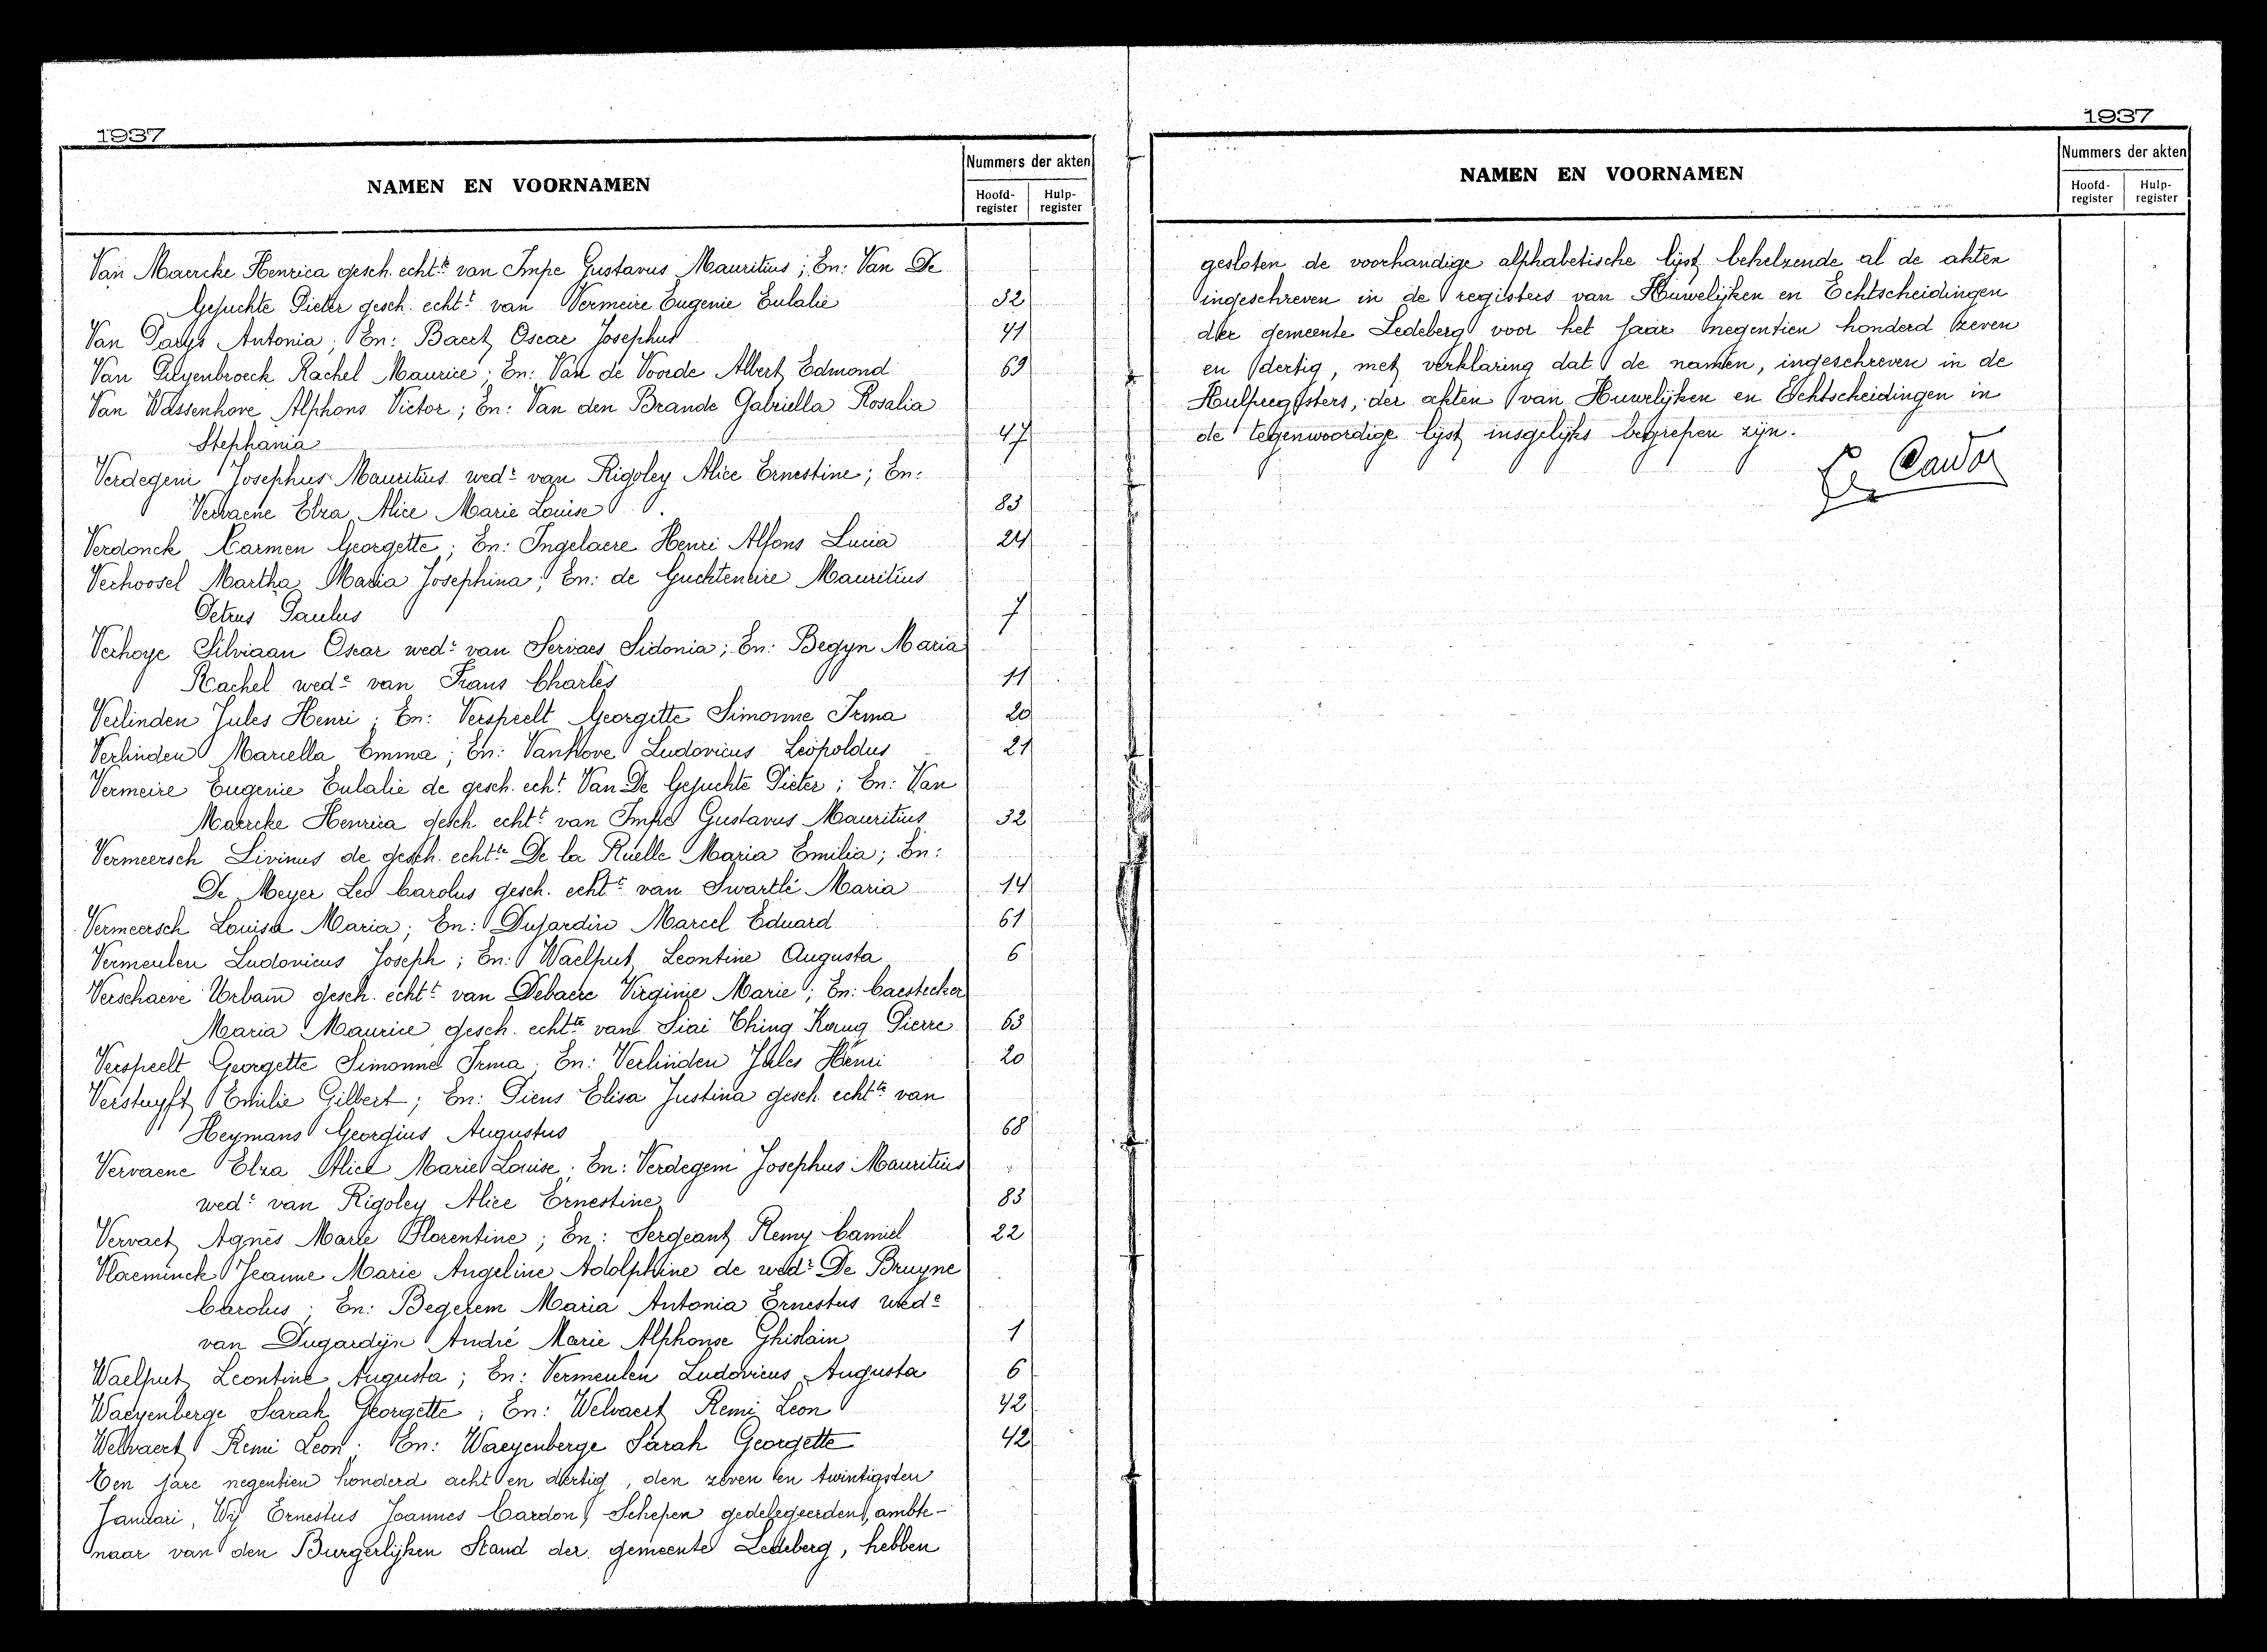 1937
NAMEN EN VOORNAMEN
Nummers der akten
Hoofd-register
Hulp-register
Van Maercke Henrica gesch. echt.te van Impe Gustavus Mauritius ; En: Van De
Gejuchte Pieter gesch. echt.t van Vermeire Eugenie Eulalie 32
Van Parys Antonia ; En: Baert Oscar Josephus 41
Van Puyenbroeck Rachel Maurice ; En: Van de Voorde Albert Edmond 69
Van Wassenhove Alphons Victor ; En: Van den Brande Gabriella Rosalia
Stephania 47
Verdegem Josephus Mauritius wed.r van Rigoley Alice Ernestine ; En:
Vervaene Elza Alice Marie Louise 83
Verdonck Carmen Georgette ; En: Ingelaere Henri Alfons Lucia 24
Verhoosel Martha Maria Josephina ; En: de Guchteneire Mauritius
Petrus Paulus 7
Verhoye Silviaan Oscar wed.r van Servaes Sidonia ; En: Begyn Maria
Rachel wed.e van Frans Charles 11
Verlinden Jules Henri ; En: Verspeelt Georgette Simonne Irma 20
Verlinden Marcella Emma ; En: Vanhove Ludovicus Leopoldus 21
Vermeire Eugenie Eulalie de gesch. echt. Van De Gejuchte Pieter ; En: Van
Maercke Henrica gesch. echt.t van Impe Gustavus Mauritius 32
Vermeersch Livinus de gesch. echt.te De la Ruelle Maria Emilia ; En:
De Meyer Leo Carolus gesch. echt.t van Swartlé Maria 14
Vermeersch Louisa Maria ; En: Dujardin Marcel Eduard 61
Vermeulen Ludovicus Joseph ; En: Waelput Leontine Augusta 6
Verschaeve Urbain gesch. echt.t van Debaere Virginie Marie ; En: Caestecker
Maria Maurice gesch. echt.te van Siai Ching Koung Pierre 63
Verspeelt Georgette Simonne Irma ; En: Verlinden Jules Henri 20
Verstuyft Emilie Gilbert ; En: Piens Elisa Justina gesch. echt.te van
Heymans Georgius Augustus 68
Vervaene Elza Alice Marie Louise ; En: Verdegem Josephus Mauritius
wed.r van Rigoley Alice Ernestine 83
Vervaet Agnès Marie Florentine ; En: Sergeant Remy Camiel 22
Vlaeminck Jeanne Marie Angeline Adolphine de wed.r De Bruyne
Carolus ; En: Begerem Maria Antonia Ernestus wed.e
van Dugardijn André Marie Alphonse Ghislain 1
Waelput Leontine Augusta ; En: Vermeulen Ludovicus Augusta 6
Waeyenberge Sarah Georgette ; En: Welvaert Remi Leon 42
Welvaert Remi Leon ; En: Waeyenberge Sarah Georgette 42
Ten jare negentien honderd acht en dertig, den zeven en twintigsten
Januari, Wij Ernestus Joannes Cardon, Schepen gedelegeerden ambte-
naar van den Burgerlijken Stand der gemeente Ledeberg, hebben
1937
NAMEN EN VOORNAMEN
Nummers der akten
Hoofd-register
Hulp-register
gesloten de voorhandige alphabetische lijst behelzende al de akten
ingeschreven in de registers van Huwelijken en Echtscheidingen
der gemeente Ledeberg voor het jaar negentien honderd zeven
en dertig, met verklaring dat de namen, ingeschreven in de
Hulpregisters, der akten van Huwelijken en Echtscheidingen in
de tegenwoordige lijst insgelijks begrepen zijn.